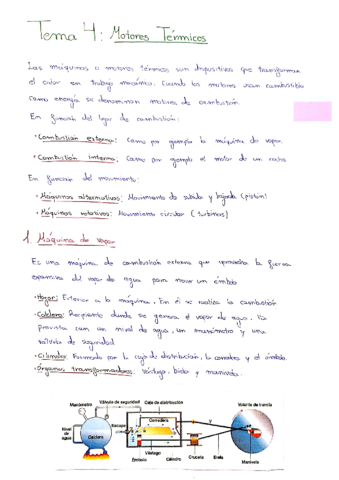 Tema 4: Motores Térmicos
Las máquinas o motores térmicos son dispositivos que transforman
el calor en trabajo mecánico. Cuando los motores usan combustible
como energía se denominan motores de combustión.
En función del lugar de combustión:
· Combustión externa: Como por ejemplo la máquina de vapor.
· Combustión interna: Como por ejemplo el motor de un coche
En función del movimiento:
· Máquinas alternativas: Movimiento de subida y bajada (pistón)
· Máquinas rotativas: Movimiento circular (turbinas)
1. Máquina de vapor
Es una máquina de combustión externa que aprovecha la fuerza
expansiva del vapor de agua para mover un émbolo
· Hogar: Exterior a la máquina. En él se realiza la combustión
· Caldera: Recipiente donde se genera el vapor de agua. Va
provista con un nivel de agua, un manómetro y una
válvula de seguridad
· Cilindro: Formado por la caja de distribución, la corredera y el émbolo.
· Órganos transformadores: Vástago, biela y manivela.
Manómetro Válvula de seguridad Caja de distribución Volante de inercia
Corredera
Nivel de agua Escape V
Caldera
Vástago
Émbolo Cilindro Cruceta Biela Manivela